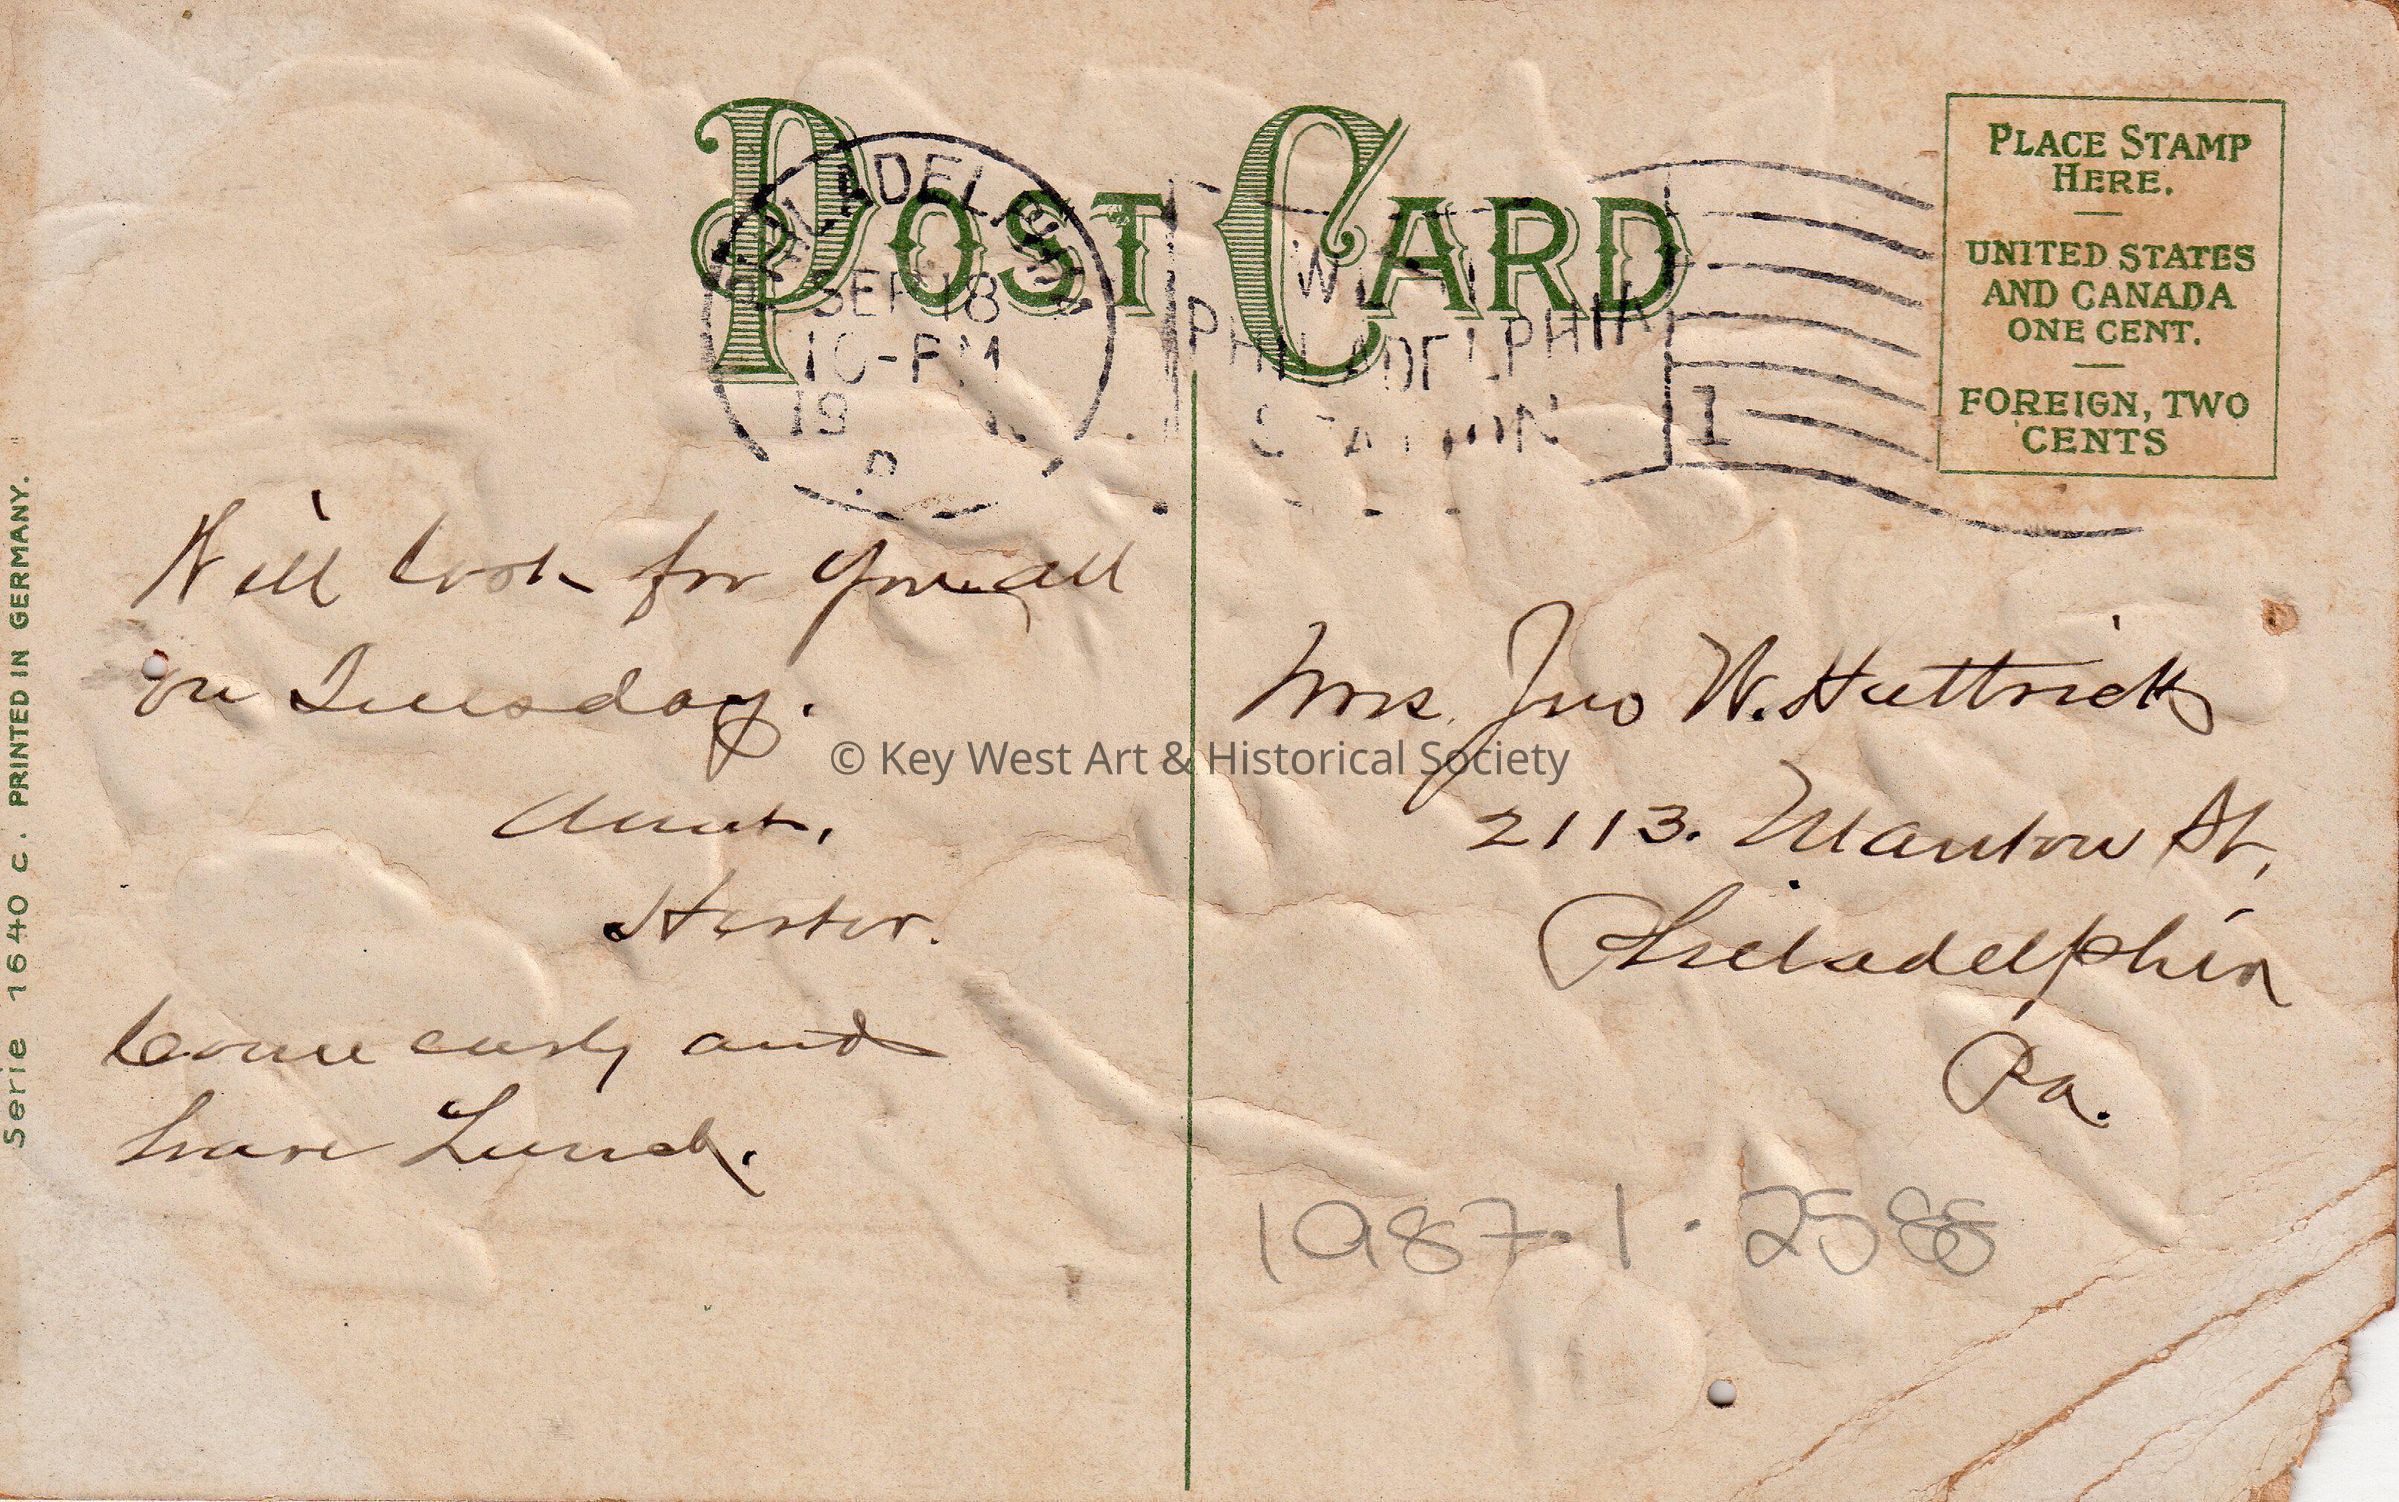 POST CARD
PHILADELPHIA
SEP 18
10-PM
19
W
PHILADELPHIA
STATION
1
PLACE STAMP
HERE.
UNITED STATES
AND CANADA
ONE CENT.
FOREIGN, TWO
CENTS
Will look for you all
on Tuesday.
Aunt,
Hester.
Come early and
have Lunch.
Mrs. Jno W. Huttrick
2113. Manton St,
Philadelphia
Pa.
1987.1.2588
Serie 1640 c. PRINTED IN GERMANY.
© Key West Art & Historical Society